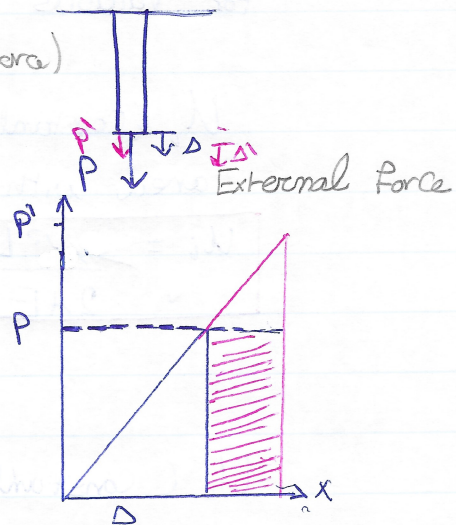 orce)
P' Δ Δ'
P
External Force
P'
P
Δ X